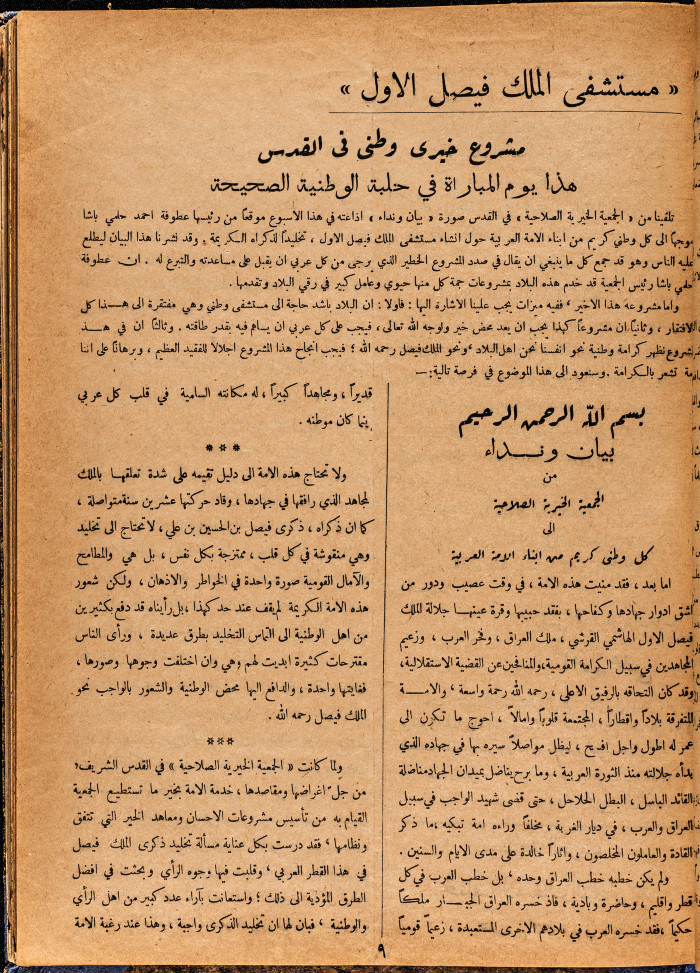 « مستشفى الملك فيصل الاول »
مشروع خيرى وطنى فى القدس
هذا يوم المباراة في حلبة الوطنية الصحيحة
تلقينا من « الجمعية الخيرية الصلاحية » في القدس صورة « بيان ونداء » اذاعته في هذا الاسبوع موقعاً من رئيسها عطوفة احمد حلمي باشا
موجهاً الى كل وطني كريم من ابناء الامة العربية حول انشاء مستشفى الملك فيصل الاول ، تخليداً لذكراه الكريمة . وقد نشرنا هذا البيان ليطلع
عليه الناس وهو قد جمع كل ما ينبغي ان يقال في صدد المشروع الخطير الذي يرجى من كل عربي ان يقبل على مساعدته والتبرع له . ان عطوفة
حلمي باشا رئيس الجمعية قد خدم هذه البلاد بمشروعات جمة كل منها حيوي وعامل كبير في رقي البلاد وتقدمها .
واما مشروعه هذا الاخير ، ففيه ميزات يجب علينا الاشارة اليها : فاولا : ان البلاد باشد حاجة الى مستشفى وطني وهي مفتقرة الى هـذا كل
الافتقار ، وثانياً ان مشروعاً كهذا يجب ان يعد محض خير ولوجه الله تعالى ، فيجب على كل عربي ان يساهم فيه بقدر طاقته . وثالثاً ان في هـذ
مشروع تظهر كرامة وطنية نحو انفسنا نحن اهل البلاد ، ونحو الملك فيصل رحمه الله ؛ فيجب انجاح هذا المشروع اجلالاً للفقيد العظيم ، وبرهاناً على اننا
مة تشعر بالكرامة . وسنعود الى هذا الموضوع في فرصة تالية :—
بسم الله الرحمن الرحيم
بيان ونـــداء
من
الجمعية الخيرية الصلاحية
الى
كل وطنى كريم من ابناء الامة العربية
اما بعد ، فقد منيت هذه الامة ، في وقت عصيب ودور من
اشق ادوار جهادها وكفاحها ، بفقد حبيبها وقرة عينهـا جلالة الملك
فيصل الاول الهاشمي القرشي ، ملك العراق ، وفخر العرب ، وزعيم
المجاهدين في سبيل الكرامة القومية، والمنافحين عن القضية الاستقلالية،
وقد كان التحاقه بالرفيق الاعلى ، رحمه الله رحمة واسعة ، والامـــة
المتفرقة بلاداً واقطاراً ، المجتمعة قلوباً وامالاً ، احوج ما تكون الى
عمر له اطول واجل افسح ، ليظل مواصلاً سيره بها في جهاده الذي
بدأه جلالته منذ الثورة العربية ، وما برح يناضل بميدان الجهاد مناضلة
القائد الباسل ، البطل الحلاحل ، حتى قضى شهيد الواجب في سبيل
العراق والعرب ، في ديار الغربة ، مخلفاً وراءه امة تبكيه ، ما ذكر
القادة والعاملون المخلصون ، واثاراً خالدة على مدى الايام والسنين .
ولم يكن خطبه خطب العراق وحده ، بل خطب العرب في كل
قطر واقليم ، وحاضرة وبادية ، فاذ خسره العراق الجبـار ملكـاً
حكيماً ، فقد خسره العرب في بلادهم الاخرى المستعبدة ، زعيماً قومياً
قديراً ، ومجاهداً كبيراً ، له مكانته السامية في قلب كل عربي
ينما كان موطنه .
* * *
ولا تحتاج هذه الامة الى دليل تقيمه على شدة تعلقهـا بالملك
لمجاهد الذي رافقها في جهادها ، وقاد حركتها عشرين سنة متواصلة ،
كما ان ذكراه ، ذكرى فيصل بن الحسين بن علي ، لا تحتاج الى تخليد
وهي منقوشة في كل قلب ، ممتزجة بكل نفس ، بل هي والمطامح
والآمال القومية صورة واحدة في الخواطر والاذهان ، ولكن شعور
هذه الامة الكريمة لم يقف عند حد كهذا ، بل رأيناه قد دفع بكثيرين
من اهل الوطنية الى التماس التخليد بطرق عديدة ، ورأى الناس
مقترحات كثيرة ابديت لهم ، وهي وان اختلفت وجوهها وصورها ،
فغايتها واحدة ، والدافع اليها محض الوطنية والشعور بالواجب نحو
الملك فيصل رحمه الله .
***
ولما كانت « الجمعية الخيرية الصلاحية » في القدس الشريف ،
من جل اغراضها ومقاصدها ، خدمة الامة بخير ما تستطيع الجمعية
القيام به من تأسيس مشروعات الاحسان ومعاهد الخير التي تتفق
ونظامها ، فقد درست بكل عناية مسألة تخليد ذكرى الملك فيصل
في هذا القطر العربي ، وقلبت فيها وجوه الرأي وبحثت في افضل
الطرق المؤدية الى ذلك ؛ واستعانت بآراء عدد كبير من اهل الرأي
والوطنية ، فبان لها ان تخليد الذكرى واجبة ، وهذا عند رغبة الامة
٩